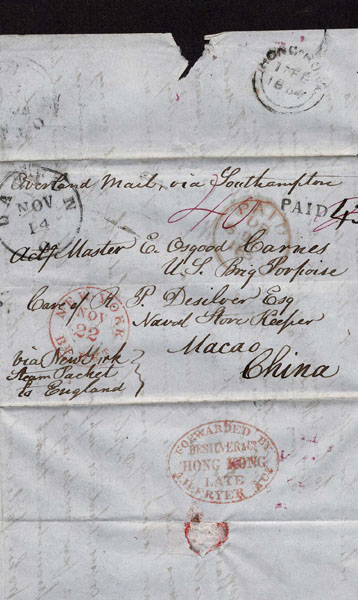 HONG KONG
FEB
1854
Overland Mail, via Southampton
NOV
14
PAID
Actg Master E. Osgood Carnes
U.S. Brig Porpoise
Care of R. P. Desilver Esq
Naval Store Keeper
NEW YORK
NOV
22
Macao
China
via New York
Steam Packet
to England
FORWARDED BY
DESILVER & Co
HONG KONG
LATE